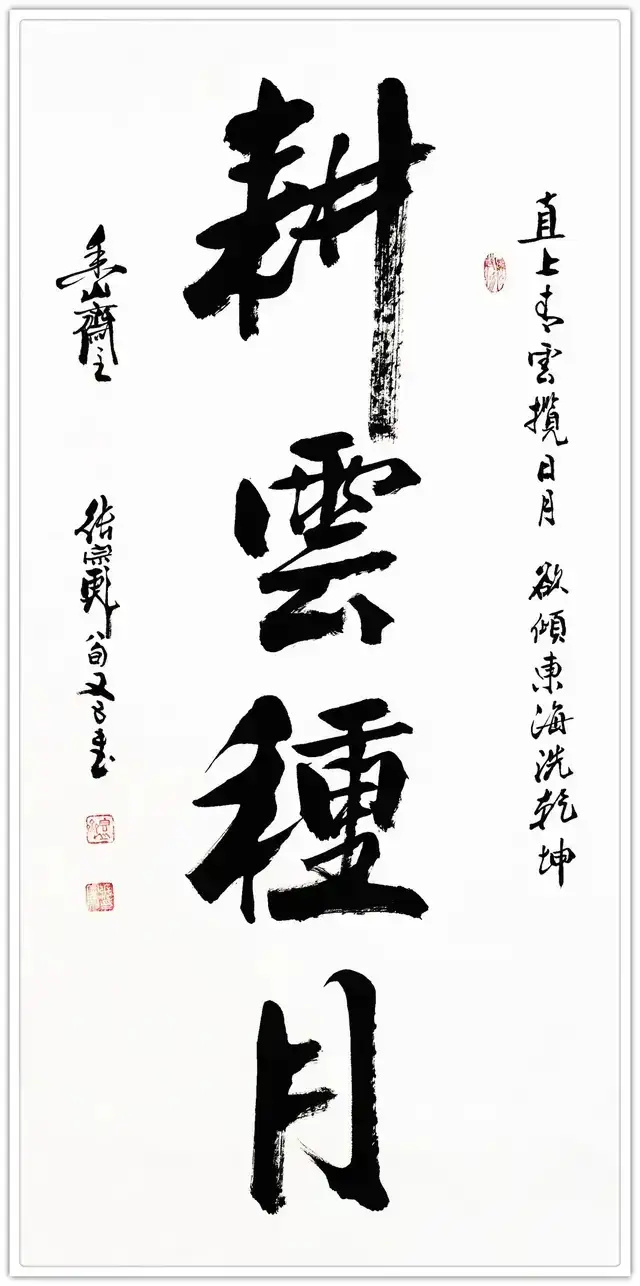 直上青雲攬日月 欲傾東海洗乾坤
耕雲種月
山齋主 宗 八旬又 書